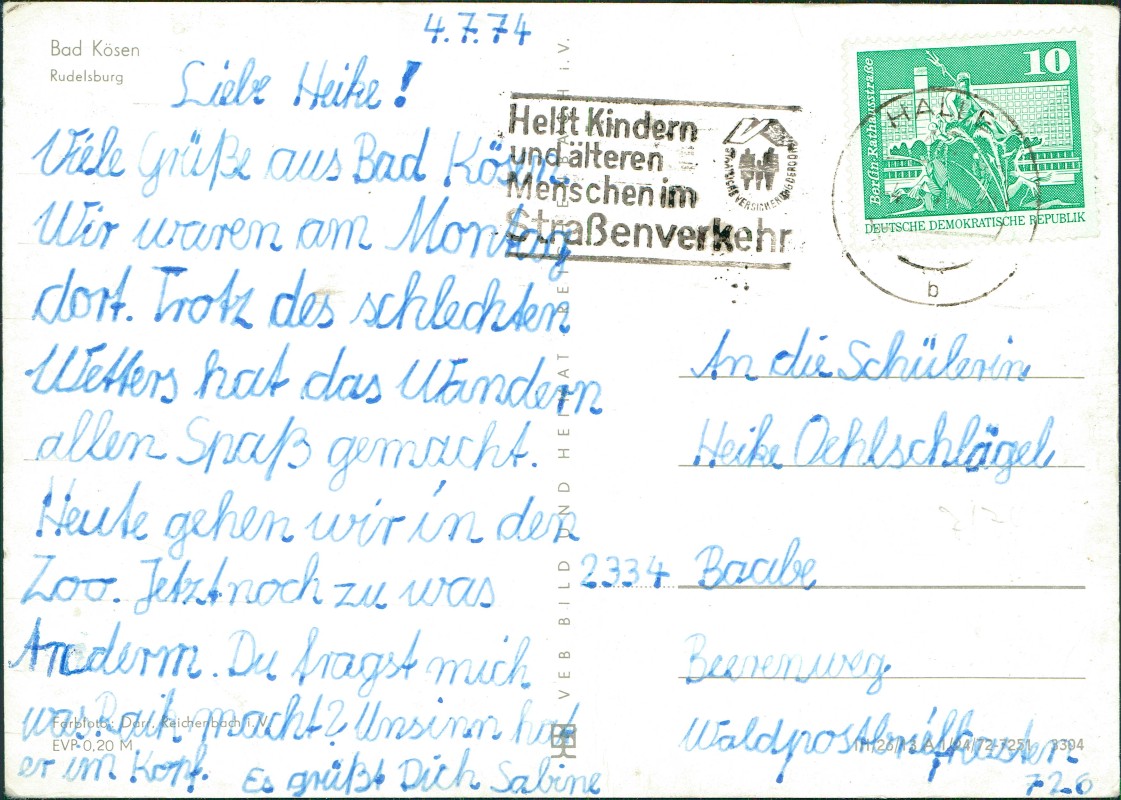 4.7.74
Bad Kösen
Rudelsburg
Liebe Heike!
Viele Grüße aus Bad Kösen.
Wir waren am Montag
dort. Trotz des schlechten
Wetters hat das Wandern
allen Spaß gemacht.
Heute gehen wir in den
Zoo. Jetzt noch zu was
Anderm. Du fragst mich
was Raik macht? Unsinn hat
er im Kopf. Es grüßt Dich Sabine
Farbfoto: Darr, Reichenbach i. V.
EVP 0,20 M
VEB BILD UND HEIMAT REICHENBACH i. V.
Helft Kindern
und älteren
Menschen im
Straßenverkehr
HALLE
b
10
Berlin, Rathausstraße
DEUTSCHE DEMOKRATISCHE REPUBLIK
An die Schülerin
Heike Oehlschlägel
2334 Baabe
Beerenweg
Waldpostbriefkasten
A 1/94/72 7251 3304
726